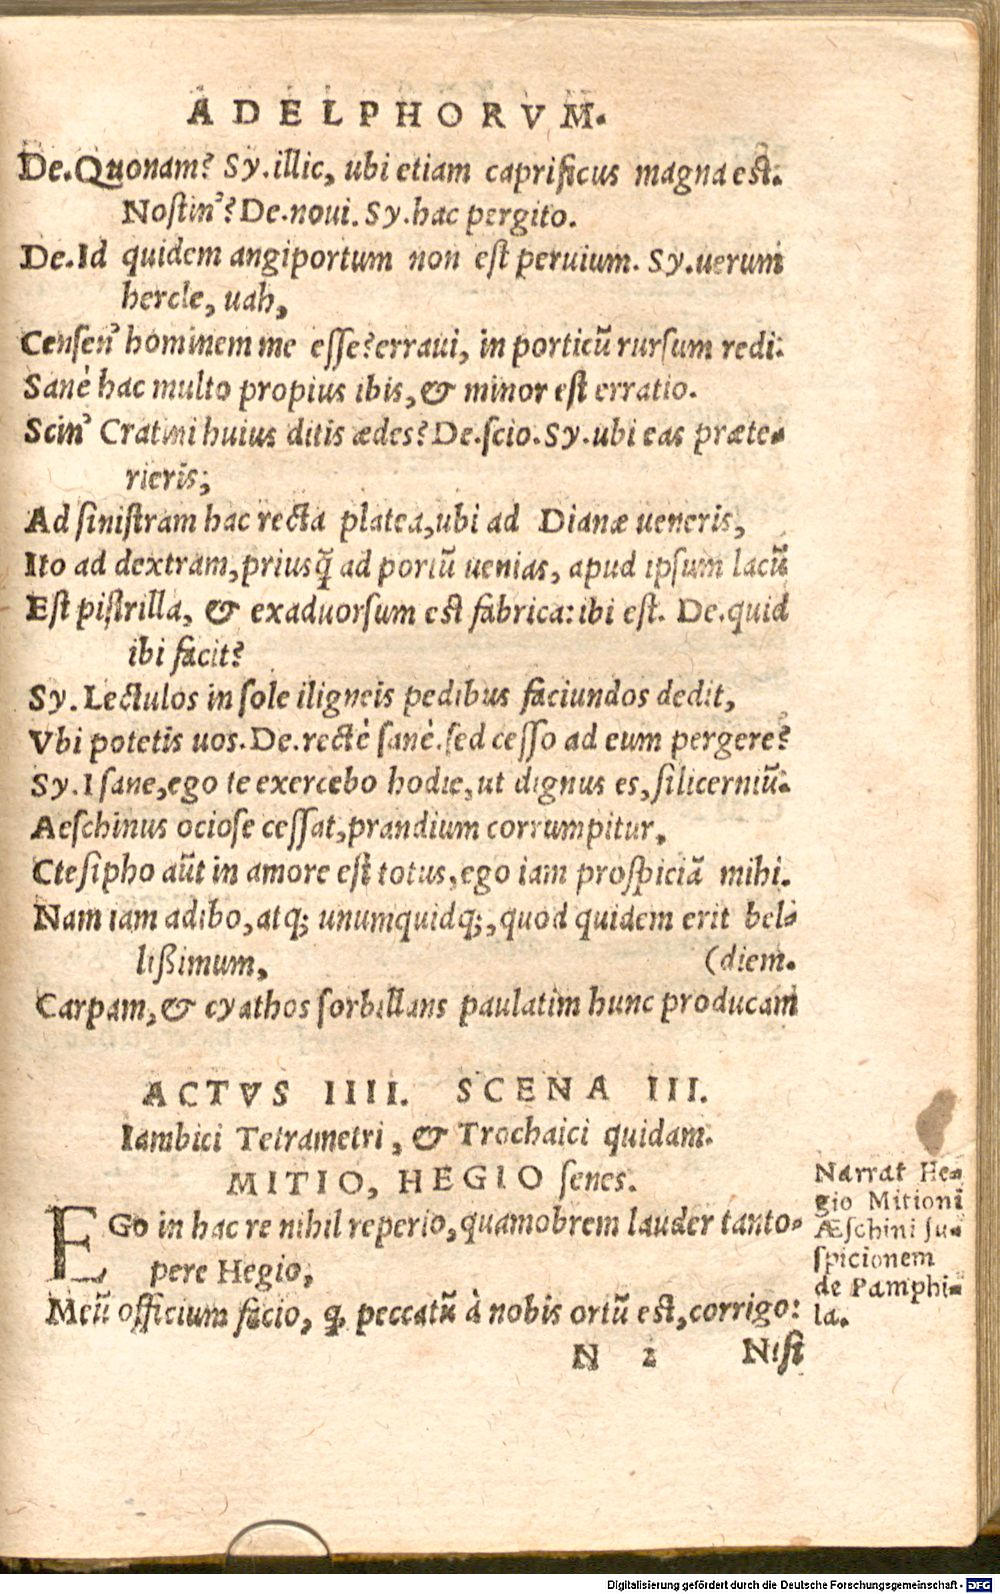 ADELPHORVM.
De.Quonam? Sy.illic, ubi etiam caprificus magna est.
Nostin'? De.noui. Sy.hac pergito.
De.Id quidem angiportum non est peruium. Sy.uerum
hercle, uah,
Censen' hominem me esse? erraui, in porticũ rursum redi:
Sanè hac multo propius ibis, & minor est erratio.
Scin' Cratini huius ditis ædes? De.scio. Sy.ubi eas præte-
rieris;
Ad sinistram hac recta platea, ubi ad Dianæ ueneris,
Ito ad dextram, priusq̃ ad portũ uenias, apud ipsum lacũ
Est pistrilla, & exaduorsum est fabrica: ibi est. De.quid
ibi facit?
Sy. Lectulos in sole iligneis pedibus faciundos dedit,
Vbi potetis uos. De.rectè sanè. sed cesso ad eum pergere?
Sy. I sane, ego te exercebo hodie, ut dignus es, silicerniũ.
Aeschinus ociose cessat, prandium corrumpitur,
Ctesipho aũt in amore est totus, ego iam prospiciã mihi.
Nam iam adibo, atq; unumquidq;, quod quidem erit bel-
lißimum, (diem.
Carpam, & cyathos sorbillans paulatim hunc producam
ACTVS IIII. SCENA III.
Iambici Tetrametri, & Trochaici quidam.
MITIO, HEGIO senes.
EGo in hac re nihil reperio, quamobrem lauder tanto-
pere Hegio,
Meũ officium facio, q̃ peccatũ à nobis ortũ est, corrigo:
Narrat He-
gio Mitioni
Æschini su-
spicionem
de Pamphi-
la.
N 2 Nisi
Digitalisierung gefördert durch die Deutsche Forschungsgemeinschaft - DFG